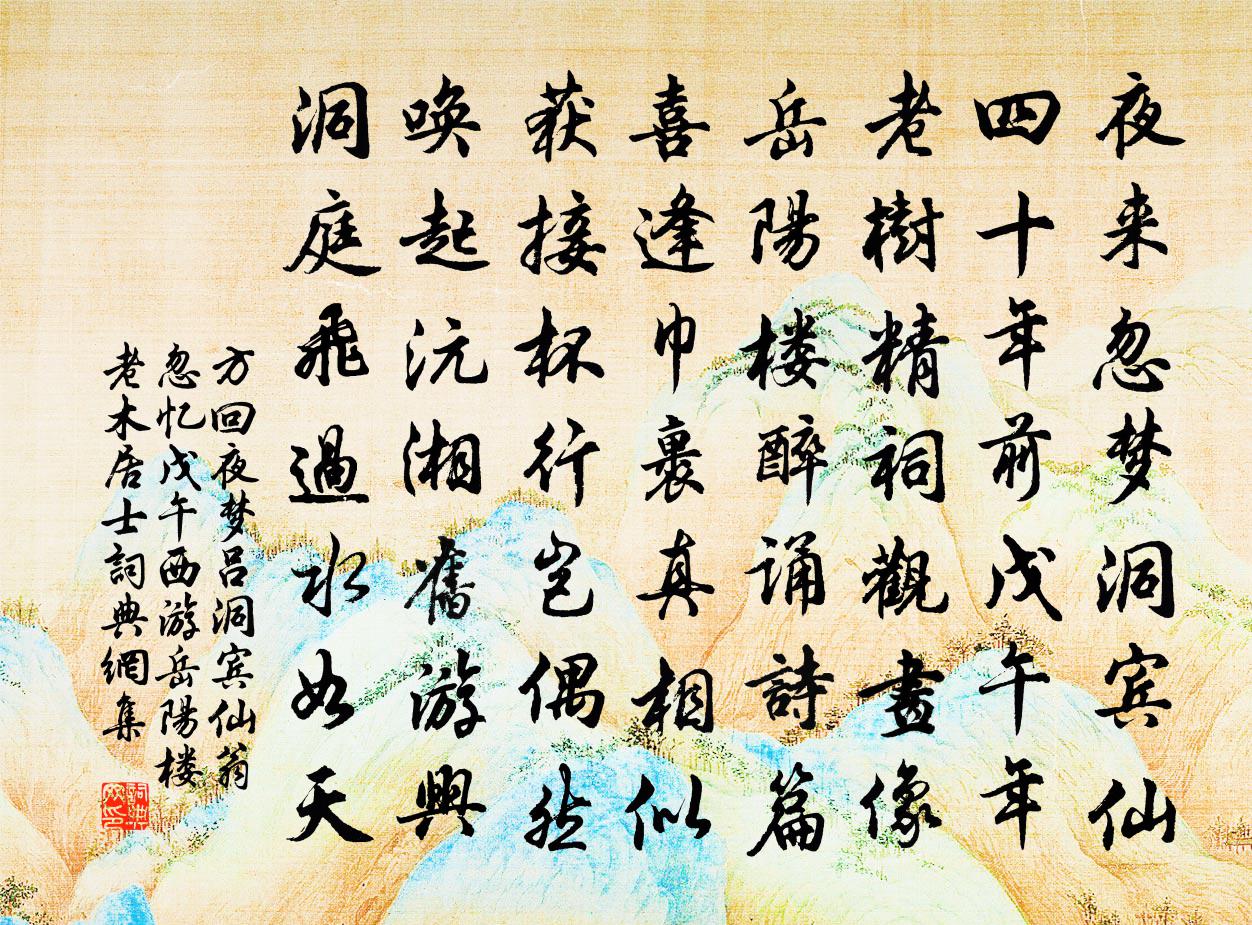 夜来忽梦洞宾仙
四十年前戊午年
老樹精祠觀畫像
岳陽楼醉诵詩篇
喜逢巾裹真相似
获接杯行岂偶然
唤起沅湘舊游興
洞庭飛過水如天
方回夜梦吕洞宾仙翁
忽忆戊午西游岳陽楼
老木居士詞典網集